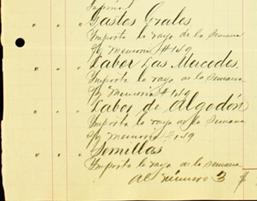 Gastos Grales
Importe lo rayo de la semana
Sg Memoria #149
" " " Labor Las Mercedes
Importe lo rayo de la semana
Sg Memoria #149
" " " Labor de Algodón
Importe lo rayo de la semana
Sg Memoria #149
" " " Semillas
Importe lo rayo de la semana
al número 3 $